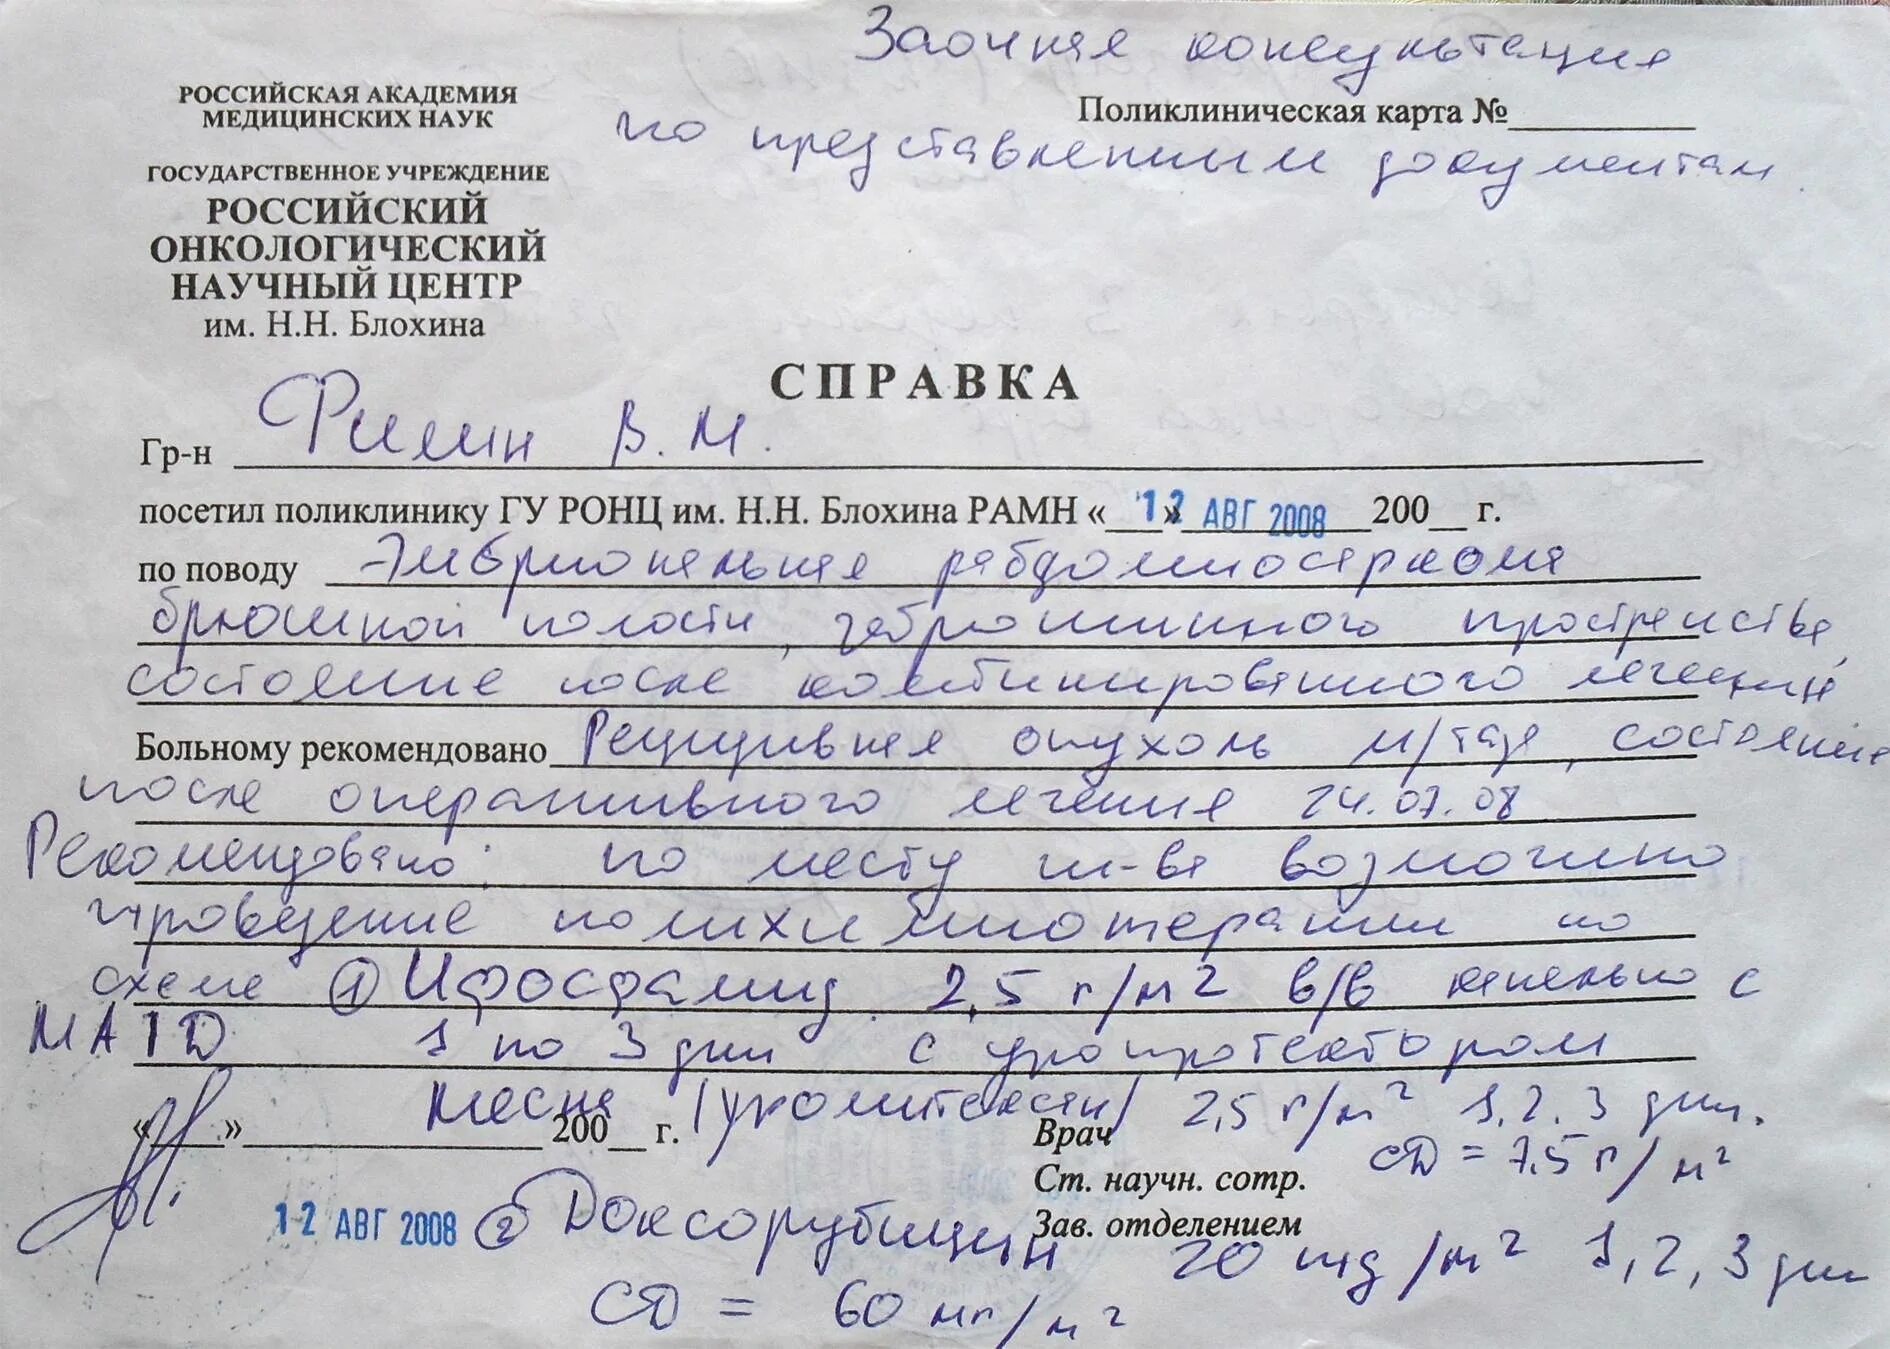 Заочная консультация
РОССИЙСКАЯ АКАДЕМИЯ
МЕДИЦИНСКИХ НАУК
Поликлиническая карта №
по представленным документам
ГОСУДАРСТВЕННОЕ УЧРЕЖДЕНИЕ
РОССИЙСКИЙ
ОНКОЛОГИЧЕСКИЙ
НАУЧНЫЙ ЦЕНТР
им. Н.Н. Блохина
СПРАВКА
Гр-н Филин В.М.
посетил поликлинику ГУ РОНЦ им. Н.Н. Блохина РАМН « 12 » АВГ 2008 200 г.
по поводу Эмбриональная рабдомиосаркома
брюшной полости, забрюшинного пространства,
состояние после комбинированного лечения
Больному рекомендовано Рецидивная опухоль м/таза, состояние
после оперативного лечения 24.07.08
Рекомендовано: по месту ж-ва возможно
проведение полихимиотерапии по
схеме ① Ифосфамид 2,5 г/м2 в/в капельно с
MAID 1 по 3 дни с уропротектором
месна /уромитексан/ 2,5 г/м2 1, 2, 3 дни.
« » 200 г. Врач
СД = 7,5 г/м2
Ст. научн. сотр.
12 АВГ 2008 ② Доксорубицин 20 mg/м2 1, 2, 3 дни
Зав. отделением
СД = 60 мг/м2